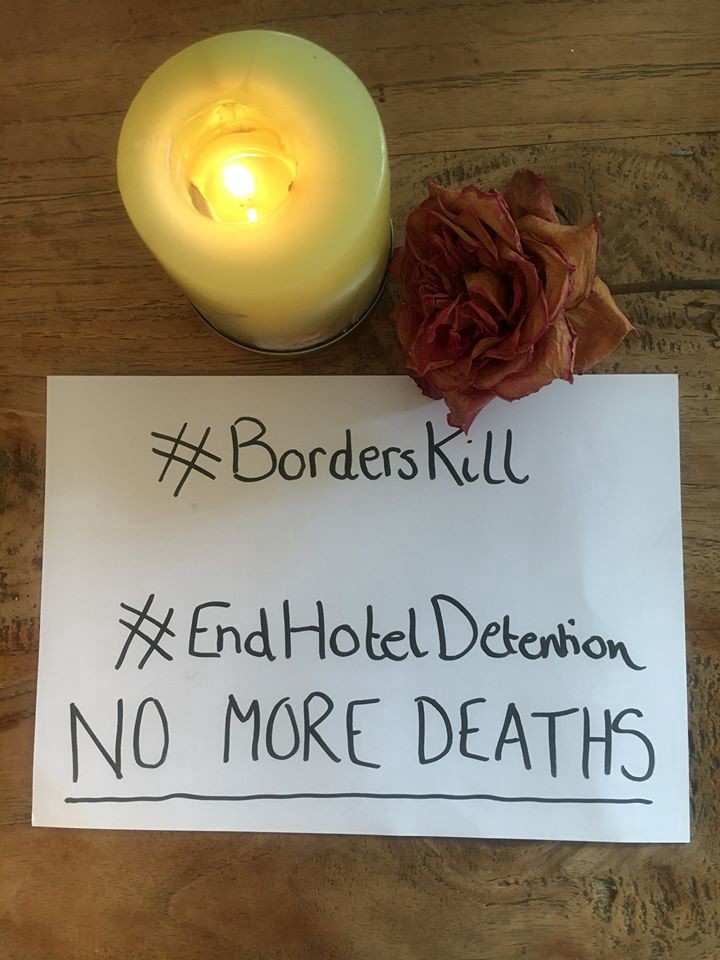 #BordersKill
#EndHotelDetention
NO MORE DEATHS